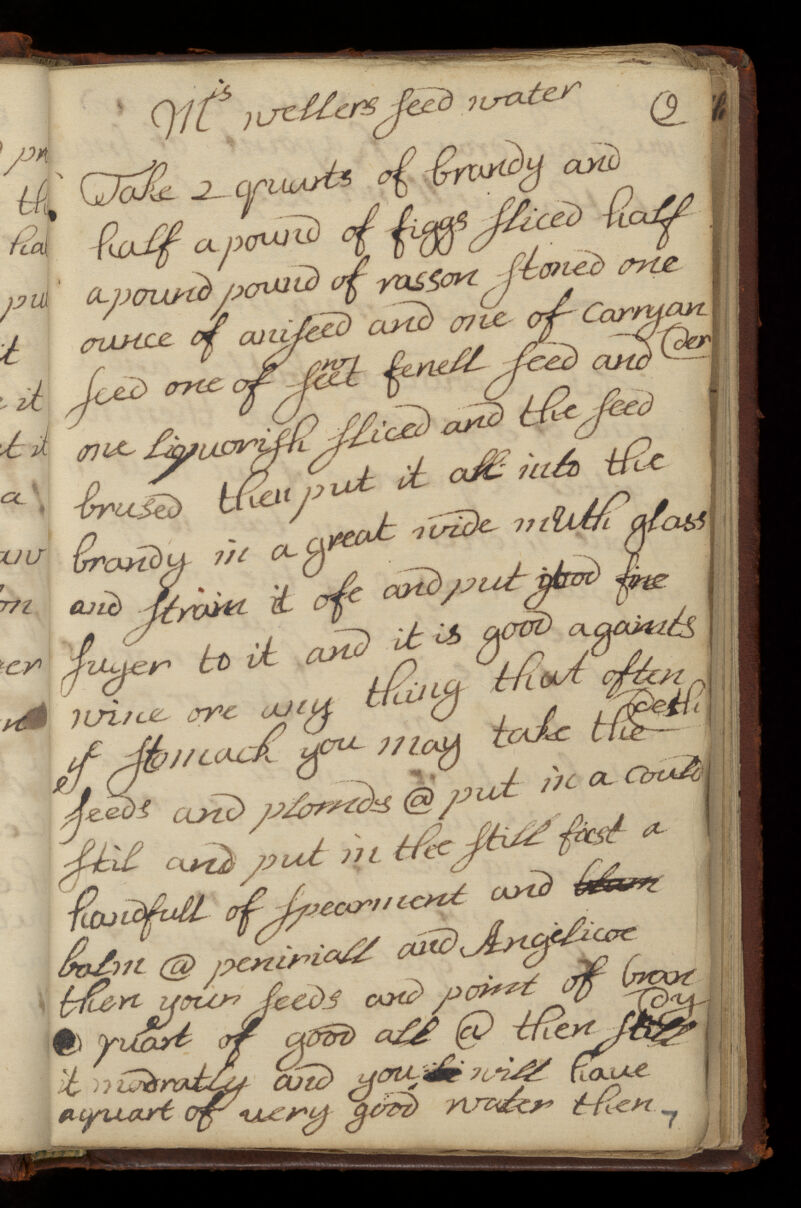 Mis wellers seed water 9
Take 2 quarts of brandy and
half a pound of figgs sliced half
a pound pound of rasson stoned one
ounce of aniseed and one of Carryan
der
seed one of seet fenell seed and
one liquorish sliced and the seed
brused then put it all into the
brandy in a great wide muth glass
and strain it ofe and put good fine
suger to it and it is good againts
wine ore any thing that often
deth
ye stomack you may take the
seeds and plomds @ put in a could
stil and put in the still first a
handfull of spearment and
balm @ peniriall and Angelicoe
then your seeds and point of bran
dy
quart of good all @ then still
it modratly and you will have
a quart of very good water then